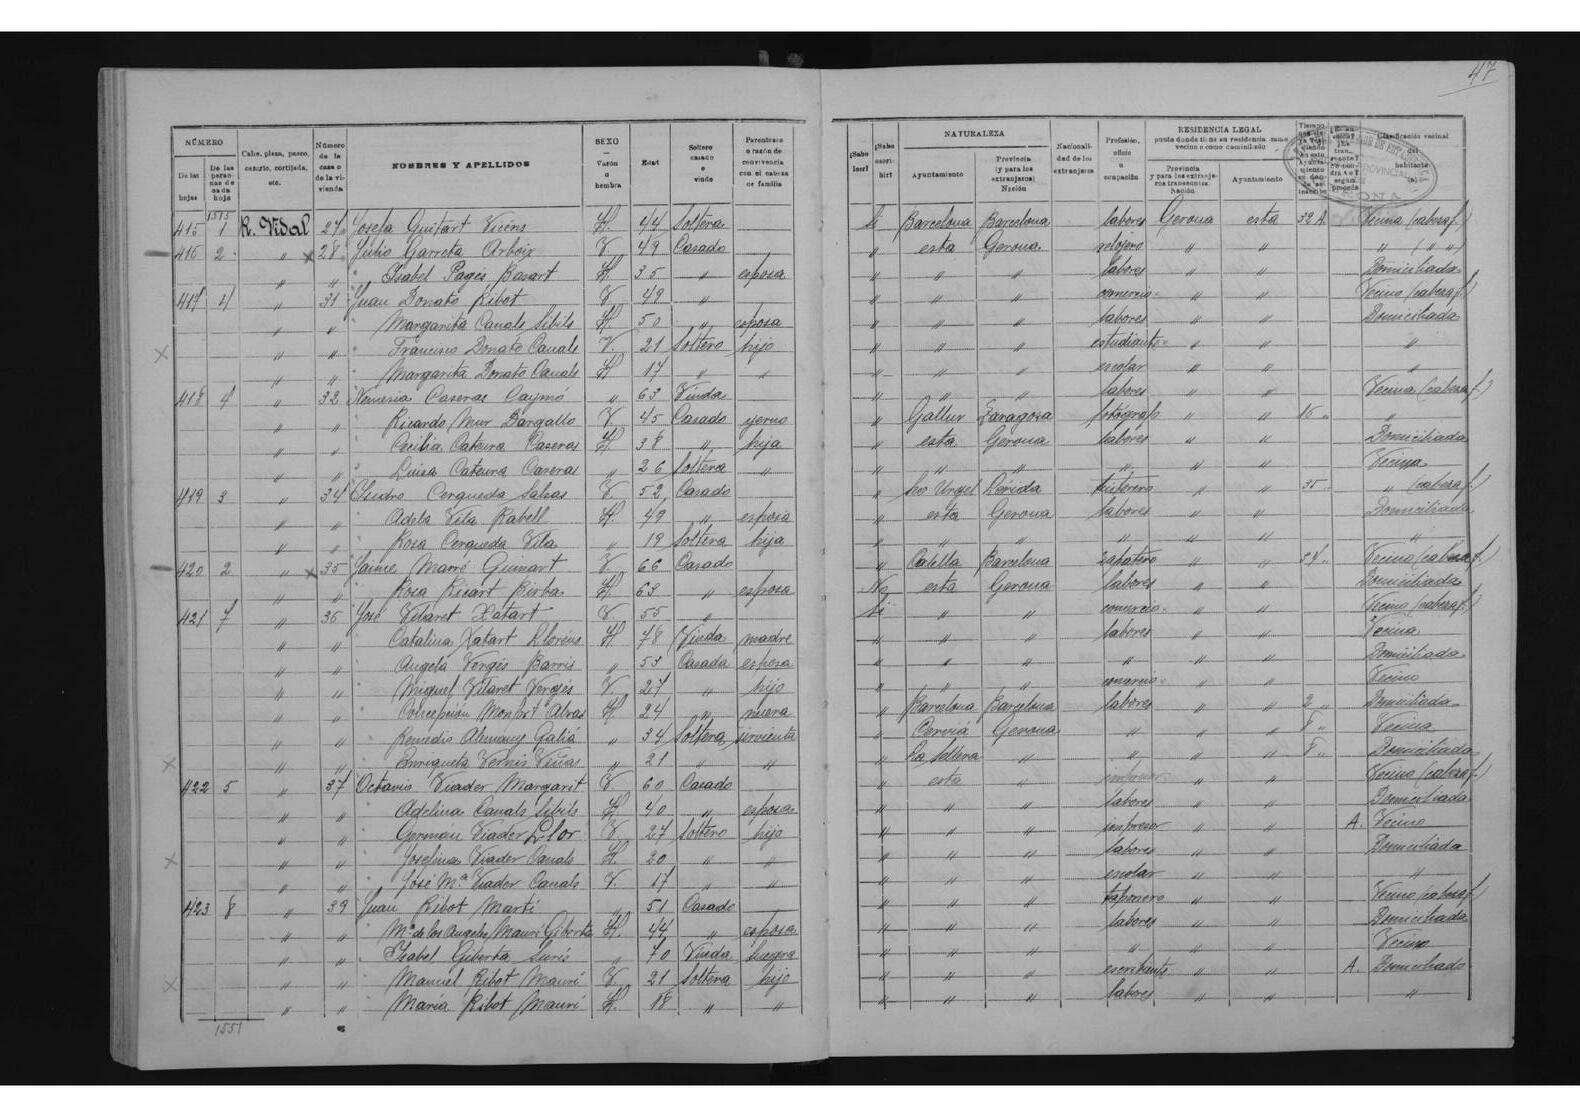 47
NÚMERO
De las hojas
De las personas de cada hoja
Calle, plaza, paseo, caserío, cortijada, etc.
Número de la casa o de la vivienda
NOMBRES Y APELLIDOS
SEXO — Varón o hembra
Edad
Soltero casado o viudo
Parentesco o razón de convivencia con el cabeza de familia
¿Sabe leer?
¿Sabe escribir?
NATURALEZA
Ayuntamiento
Provincia (y para los extranjeros) Nación
Nacionalidad de los extranjeros
Profesión, oficio u ocupación
RESIDENCIA LEGAL
punto donde tiene su residencia como vecino o como domiciliado
Provincia y para los extranjeros transeuntes. Nación
Ayuntamiento
Clasificación vecinal del habitante (a)
1515
415 1 R. Vidal 27 Josefa Guitart Vicens H. 44 Soltera Si Barcelona Barcelona labores Gerona esta 32 A. Vecina (cabeza f.)
416 2 " 28 Julio Garreta Arboix V. 49 Casado " esta Gerona relojero " " " ( " " )
" " Isabel Pagés Basart H. 35 " esposa " " " labores " " Domiciliada
417 4 " 31 Juan Donato Ribot V. 49 " " " " comercio " " Vecino (cabeza f.)
" " Margarita Canals Sibils H. 50 " esposa " " " labores " " Domiciliada
" " Francisco Donato Canals V. 21 Soltero hijo " " " estudiante " " "
" " Margarita Donato Canals H. 17 " " " " " escolar " " "
418 4 " 32 Nemesia Caseras Caymó " 63 Viuda " " " labores " " Vecina (cabeza f.)
" " Ricardo Mur Dargallo V. 45 Casado yerno " Gallur Zaragoza fotógrafo " " 16 " "
" " Cecilia Cateura Caseras H. 38 " hija " esta Gerona labores " " Domiciliada
" " Luisa Cateura Caseras " 26 Soltera " " " " " " " Vecina
419 3 " 34 Isidro Cerqueda Salvas V. 52 Casado " Seo Urgel Lérida tintorero " " 35 " " (cabeza f.)
" " Adela Vila Rabell H. 49 " esposa " esta Gerona labores " " Domiciliada
" " Rosa Cerqueda Vila " 19 Soltera hija " " " " " " "
420 2 " 35 Jaime Marré Guinart V. 66 Casado " Calella Barcelona zapatero " " 34 " Vecino (cabeza f.)
" " Rosa Ricart Birba H. 63 " esposa No esta Gerona labores " " Domiciliada
421 7 " 36 José Vilaret Xatart V. 55 " Si " " comercio " " Vecino (cabeza f.)
" " Catalina Xatart Llorens H. 78 Viuda madre " " " labores " " Vecina
" " Angela Vergés Barris " 53 Casada esposa " " " " " " Domiciliada
" " Miguel Vilaret Vergés V. 27 " hijo " " " comercio " " Vecino
" " Concepción Monfort Alvas H. 24 " nuera " Barcelona Barcelona labores " " 2 " Domiciliada
" " Remedio Alemany Galiá " 34 Soltera sirvienta " Cerviá Gerona " " " 8 " Vecina
" " Enriqueta Vernis Viñas " 21 " " " La Sellera " " " " 8 " Domiciliada
422 5 " 37 Octavio Viader Margarit V. 60 Casado " esta " impresor " " Vecino (cabeza f.)
" " Adelina Canals Sibils H. 40 " esposa " " " labores " " Domiciliada
" " German Viader Llor V. 27 Soltero hijo " " " impresor " " A. Vecino
" " Josefina Viader Canals H. 20 " " " " " labores " " Domiciliada
" " José Mª Viader Canals V. 17 " " " " " escolar " " "
423 8 " 39 Juan Ribot Martí " 51 Casado " " " taponero " " Vecino (cabeza f.)
" " Mª de los Angeles Mauri Giberta H. 44 " esposa " " " labores " " Domiciliada
" " Isabel Giberta Suris " 70 Viuda suegra " " " " " " Vecina
" " Manuel Ribot Mauri V. 21 Soltera hijo " " " escribiente " " A. Domiciliado
" " María Ribot Mauri H. 18 " " " " " labores " " "
1551